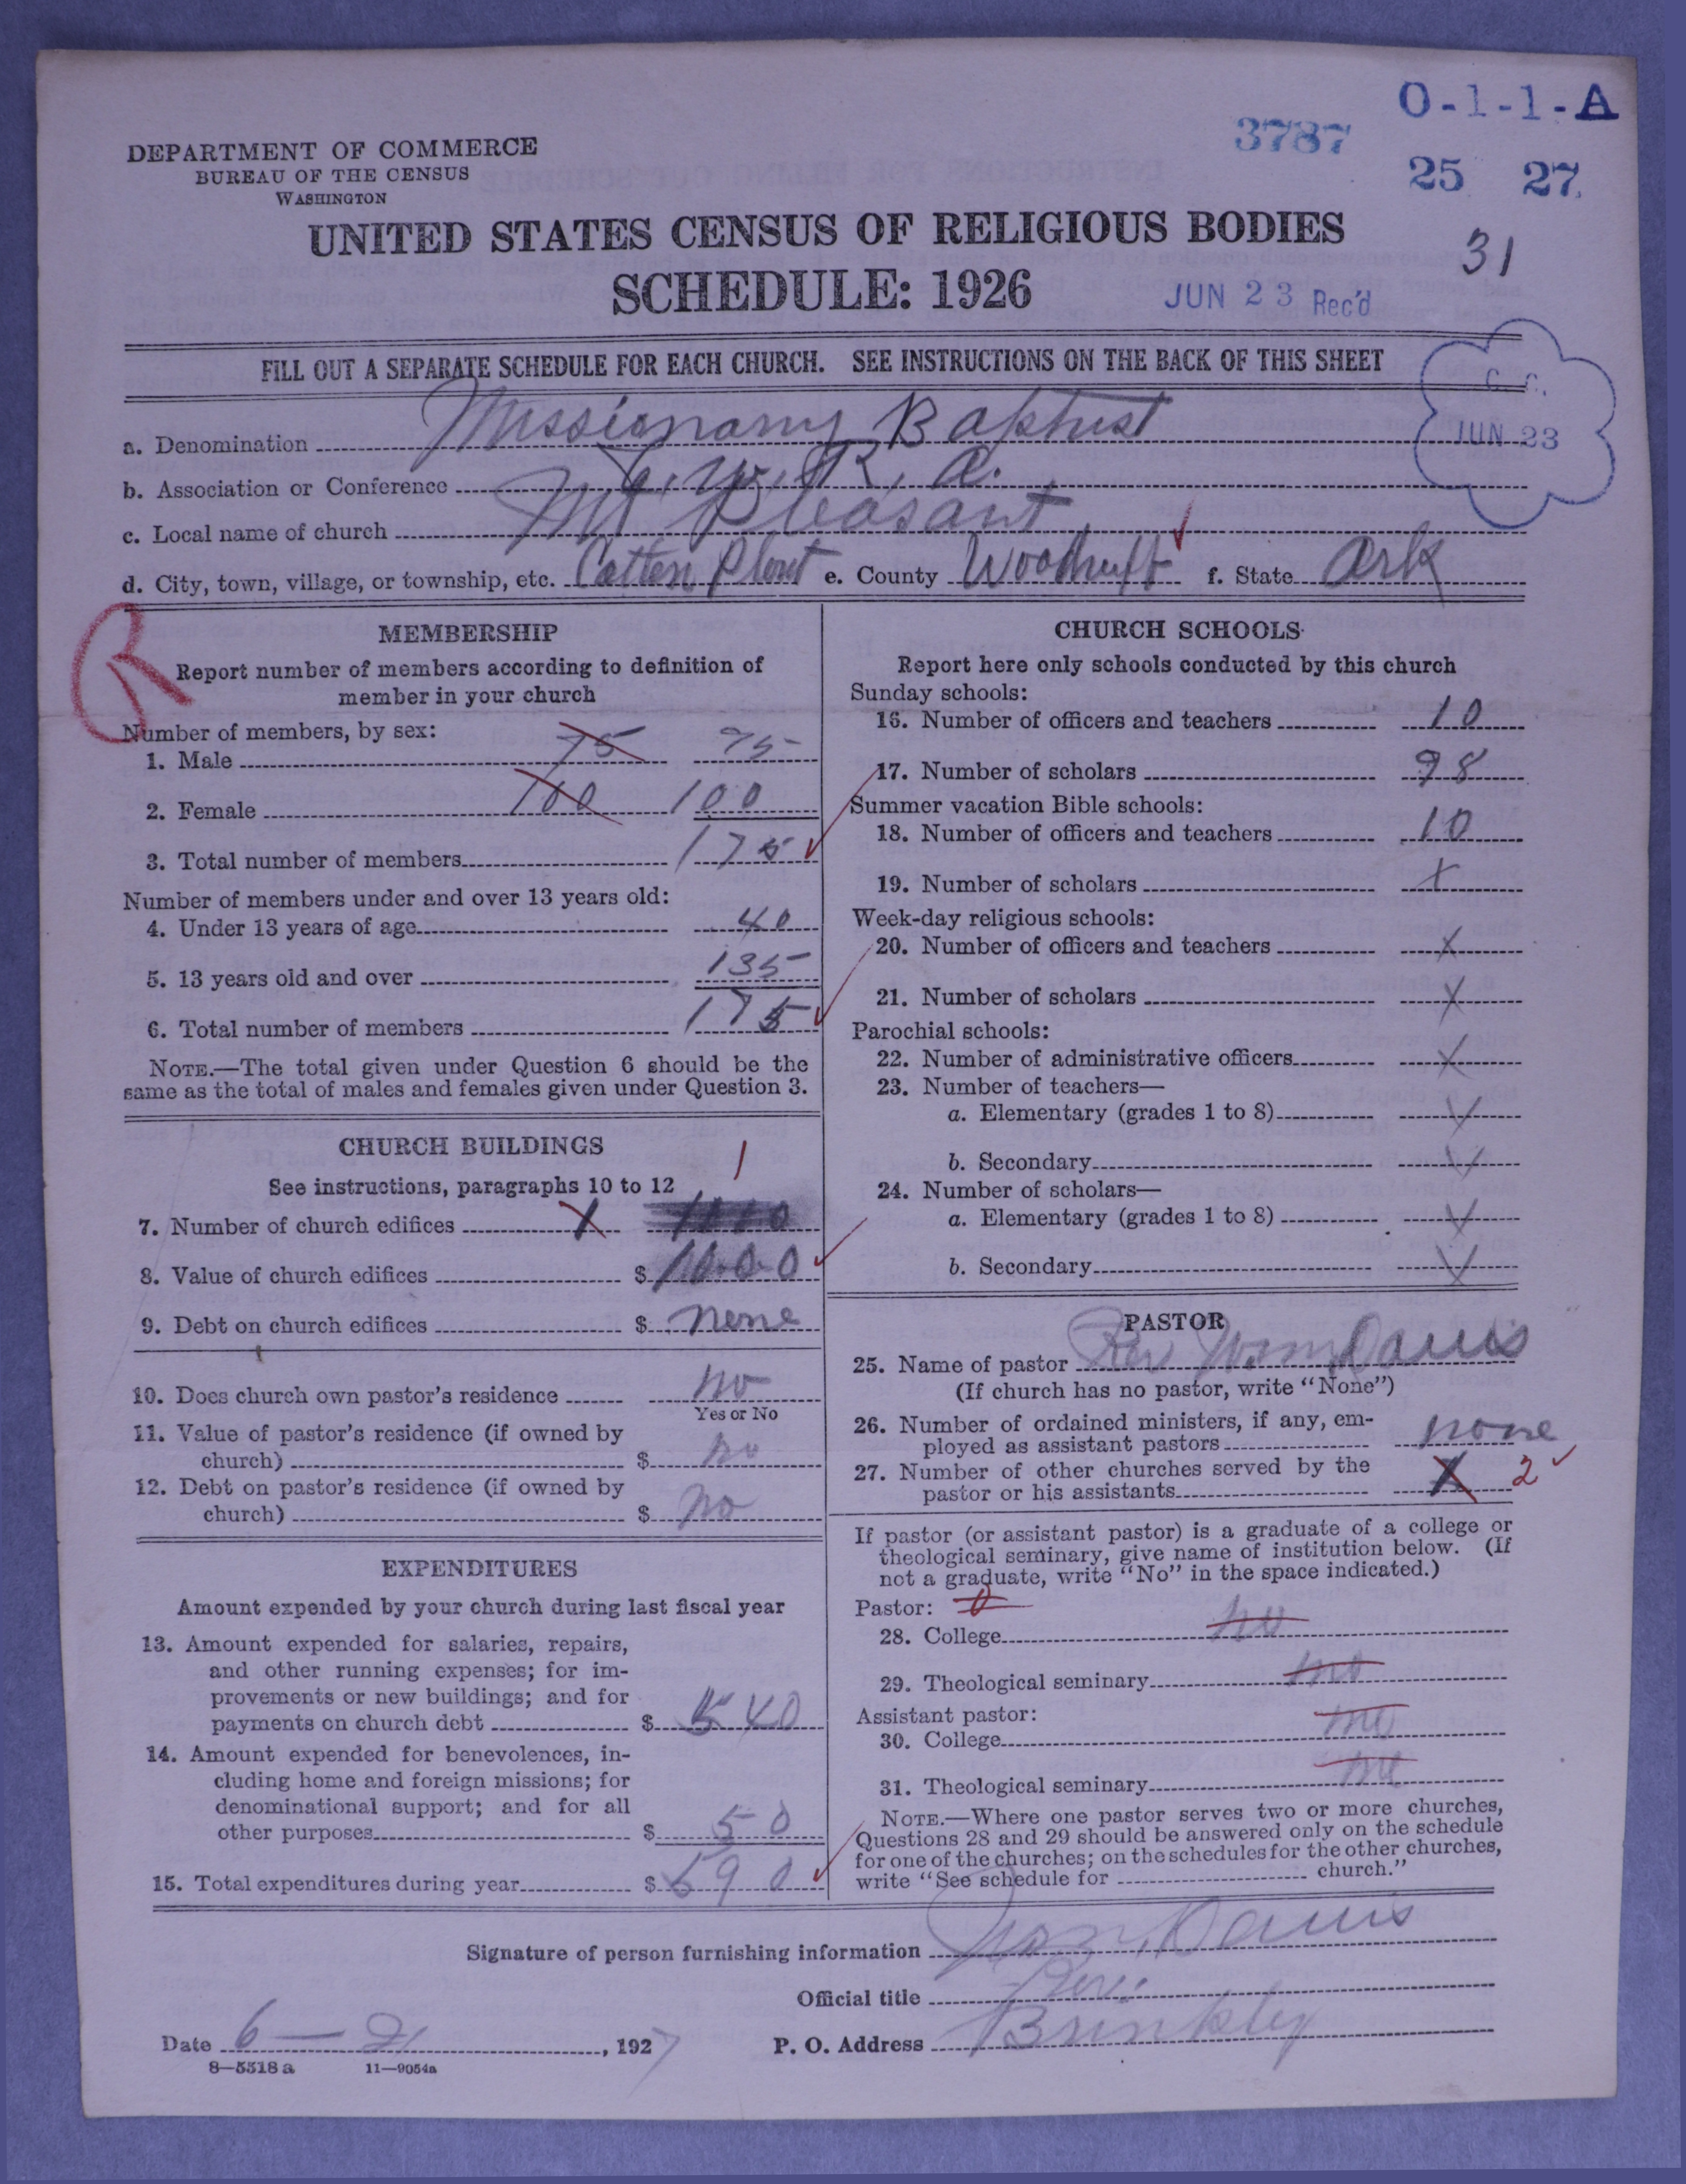 O-1-1-A
3787
25 27
DEPARTMENT OF COMMERCE
BUREAU OF THE CENSUS
WASHINGTON
UNITED STATES CENSUS OF RELIGIOUS BODIES
31
SCHEDULE: 1926
JUN 23 Rec'd
FILL OUT A SEPARATE SCHEDULE FOR EACH CHURCH. SEE INSTRUCTIONS ON THE BACK OF THIS SHEET
C. C.
JUN 23
a. Denomination Missionary Baptist
b. Association or Conference R. A.
c. Local name of church Mt Pleasant
d. City, town, village, or township, etc. Cotten Plont e. County Woodruff f. State Ark
R
MEMBERSHIP
Report number of members according to definition of
member in your church
Number of members, by sex:
1. Male 75 75
2. Female 100 100
3. Total number of members 175
Number of members under and over 13 years old:
4. Under 13 years of age 40
5. 13 years old and over 135
6. Total number of members 175
NOTE.—The total given under Question 6 should be the
same as the total of males and females given under Question 3.
CHURCH BUILDINGS
1
See instructions, paragraphs 10 to 12
7. Number of church edifices 1 1000
8. Value of church edifices $ 1000
9. Debt on church edifices $ none
10. Does church own pastor's residence no
Yes or No
11. Value of pastor's residence (if owned by
church) $ no
12. Debt on pastor's residence (if owned by
church) $ no
EXPENDITURES
Amount expended by your church during last fiscal year
13. Amount expended for salaries, repairs,
and other running expenses; for im-
provements or new buildings; and for
payments on church debt $ 540
14. Amount expended for benevolences, in-
cluding home and foreign missions; for
denominational support; and for all
other purposes $ 50
15. Total expenditures during year $ 590
CHURCH SCHOOLS
Report here only schools conducted by this church
Sunday schools:
16. Number of officers and teachers 10
17. Number of scholars 98
Summer vacation Bible schools:
18. Number of officers and teachers 10
19. Number of scholars x
Week-day religious schools:
20. Number of officers and teachers x
21. Number of scholars x
Parochial schools:
22. Number of administrative officers x
23. Number of teachers—
a. Elementary (grades 1 to 8) x
b. Secondary x
24. Number of scholars—
a. Elementary (grades 1 to 8) x
b. Secondary x
PASTOR
25. Name of pastor Rev Wm Davis
(If church has no pastor, write "None")
26. Number of ordained ministers, if any, em-
ployed as assistant pastors none
27. Number of other churches served by the
pastor or his assistants 1 2
If pastor (or assistant pastor) is a graduate of a college or
theological seminary, give name of institution below. (If
not a graduate, write "No" in the space indicated.)
Pastor: 0
28. College no
29. Theological seminary no
Assistant pastor:
30. College no
31. Theological seminary no
NOTE.—Where one pastor serves two or more churches,
Questions 28 and 29 should be answered only on the schedule
for one of the churches; on the schedules for the other churches,
write "See schedule for church."
Signature of person furnishing information Wm Davis
Official title Rev.
Date 6 — 21, 1927 P. O. Address Brinkley
8—5518 a 11—9054a